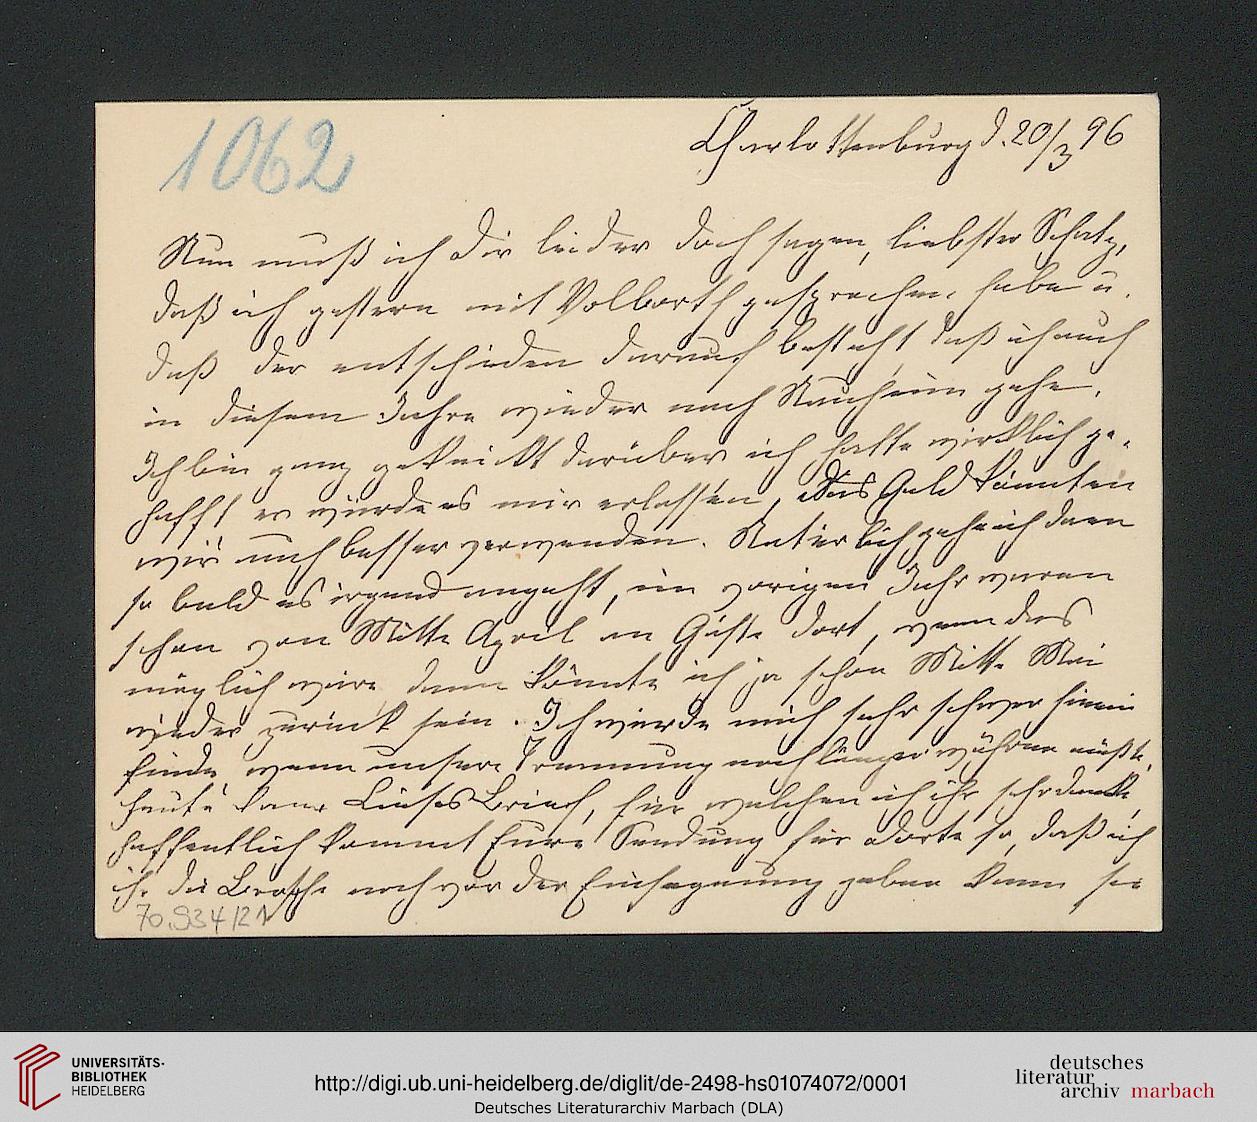 1062
Charlottenburg d. 20/3 96
Nun muß ich Dir leider doch sagen, liebster Schatz,
daß ich gestern mit Volborth gesprochen habe u.
daß der entschieden darauf besteht daß ich auch
in diesem Jahre wieder nach Nauheim gehe.
Ich bin ganz geknickt darüber ich hatte wirklich ge-
hofft er würde es mir erlassen, das Geld könnten
wir auch besser verwenden. Natürlich gehe ich dann
so bald es irgend angeht, im vorigen Jahr waren
schon von Mitte April an Gäste dort, wenn das
möglich wäre dann könnte ich ja schon Mitte Mai
wieder zurück sein. Ich würde mich sehr schwer hinein
finden wenn unsere Trennung noch länger währen müßte.
Heute kam Brief, für welchen ich ihr sehr danke,
hoffentlich kommt Eure Sendung für Dorte so, daß ich
ihr die Brosche noch vor der Einsegnung geben kann sie
70.934/21
UNIVERSITÄTS-
BIBLIOTHEK
HEIDELBERG
http://digi.ub.uni-heidelberg.de/diglit/de-2498-hs01074072/0001
Deutsches Literaturarchiv Marbach (DLA)
deutsches
literatur
archiv marbach